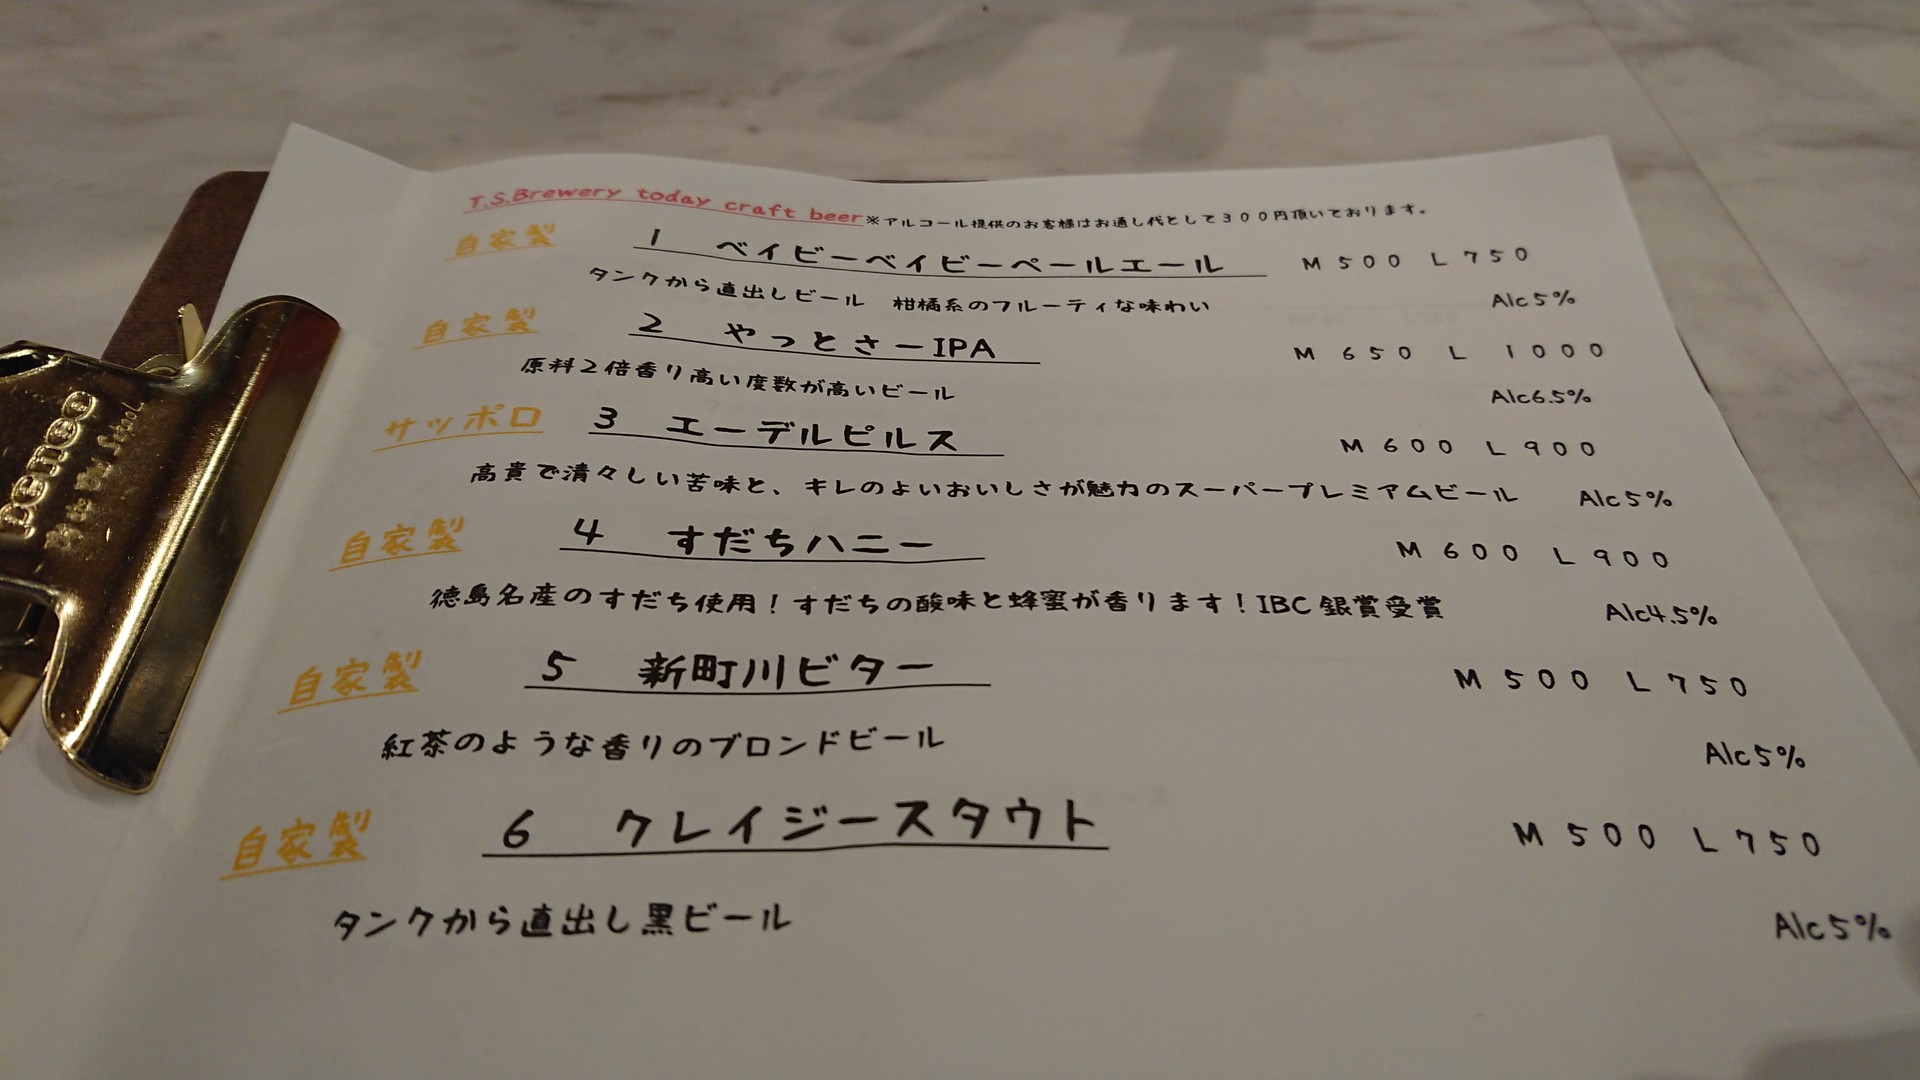 T.S.Brewery today craft beer ※アルコール提供のお客様はお通し代として300円頂いております。
自家製 1 ベイビーベイビーペールエール M500 L750
タンクから直出しビール 柑橘系のフルーティな味わい Alc5%
自家製 2 やっとさーIPA M650 L 1000
原料2倍香り高い度数が高いビール Alc6.5%
サッポロ 3 エーデルピルス M600 L900
高貴で清々しい苦味と、キレのよいおいしさが魅力のスーパープレミアムビール Alc5%
自家製 4 すだちハニー M600 L900
徳島名産のすだち使用！すだちの酸味と蜂蜜が香ります！IBC銀賞受賞 Alc4.5%
自家製 5 新町川ビター M500 L750
紅茶のような香りのブロンドビール Alc5%
自家製 6 クレイジースタウト M500 L750
タンクから直出し黒ビール Alc5%
penco